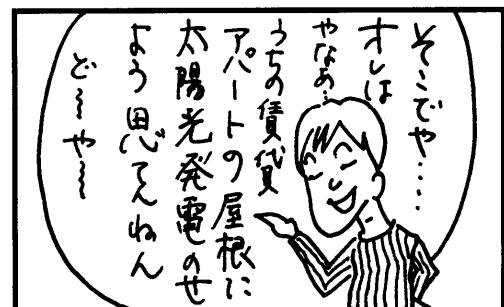 そこでや....
オレは
やなあ...
うちの賃貸
アパートの屋根に
太陽光発電のせ
よう思てんねん
ど~や~~